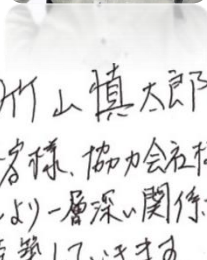 竹山慎太郎
客様、協力会社様
より一層深い関係
築していきます